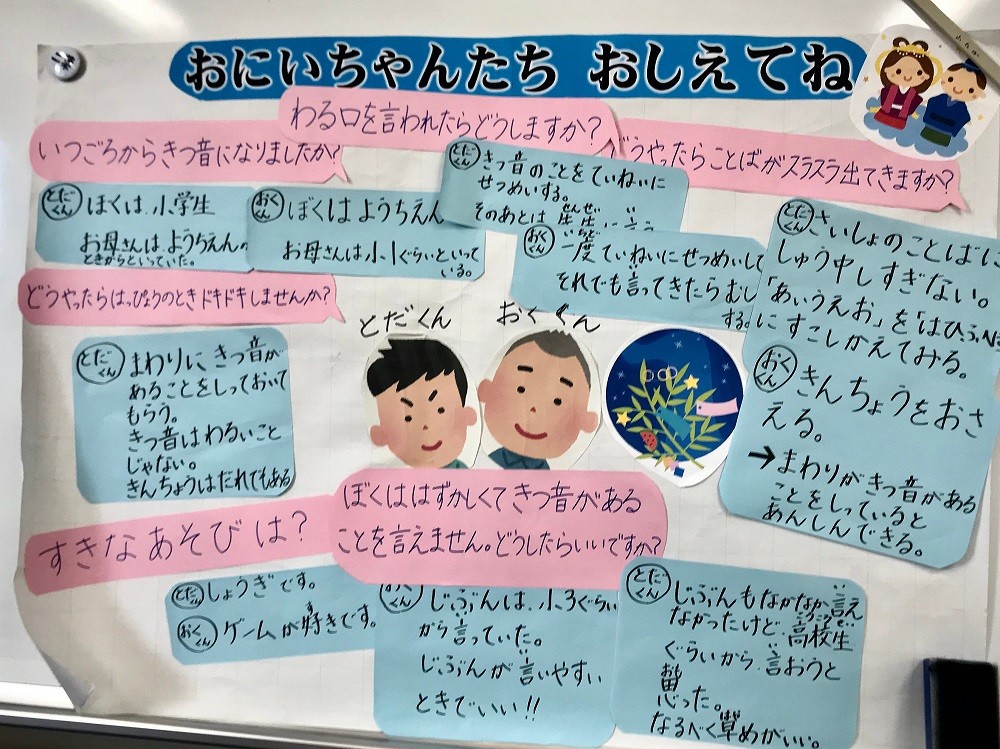 おにいちゃんたち おしえてね
わる口を言われたらどうしますか?
いつごろからきつ音になりましたか?
どうやったらことばがスラスラ出てきますか?
とだくん
ほくは、小学生
お母さんは、ようちえんの
ときからといっていた。
おくくん
ぼくはようちえん
お母さんは小1ぐらいといって
いる。
とだくん
きつ音のことをていねいに
せつめいする。
そのあとは
せんせい
おくくん
一度ていねいにせつめいして
いちど
それでも言ってきたらむし
する。
とだくん
さいしょのことばに
しゅう中しすぎない。
「あいうえお」を「はひふ
にすこしかえてみる。
おくくん
きんちょうをおさ
える。
→まわりがきつ音がある
ことをしっていると
あんしんできる。
どうやったらはっぴょうのときドキドキしませんか?
とだくん
まわりにきつ音が
あることをしっておいて
もらう。
きつ音はわるいこと
じゃない。
きんちょうはだれでもある
とだくん
おくくん
すきなあそびは?
とだくん
しょうぎです。
おくくん
ゲームが好きです。
す
ぼくははずかしくてきつ音がある
ことを言えません。どうしたらいいですか?
おくくん
じぶんは、小3ぐらい
から言っていた。
い
じぶんが言いやすい
い
ときでいい!!
とだくん
じぶんもなかなか言え
い
なかったけど、高校生
ぐらいから、言おうと
い
思った。
おも
なるべく早めがいい。